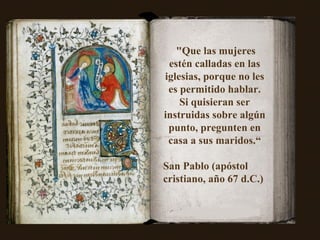 "Que las mujeres
estén calladas en las
iglesias, porque no les
es permitido hablar.
Si quisieran ser
instruidas sobre algún
punto, pregunten en
casa a sus maridos.“
San Pablo (apóstol
cristiano, año 67 d.C.)